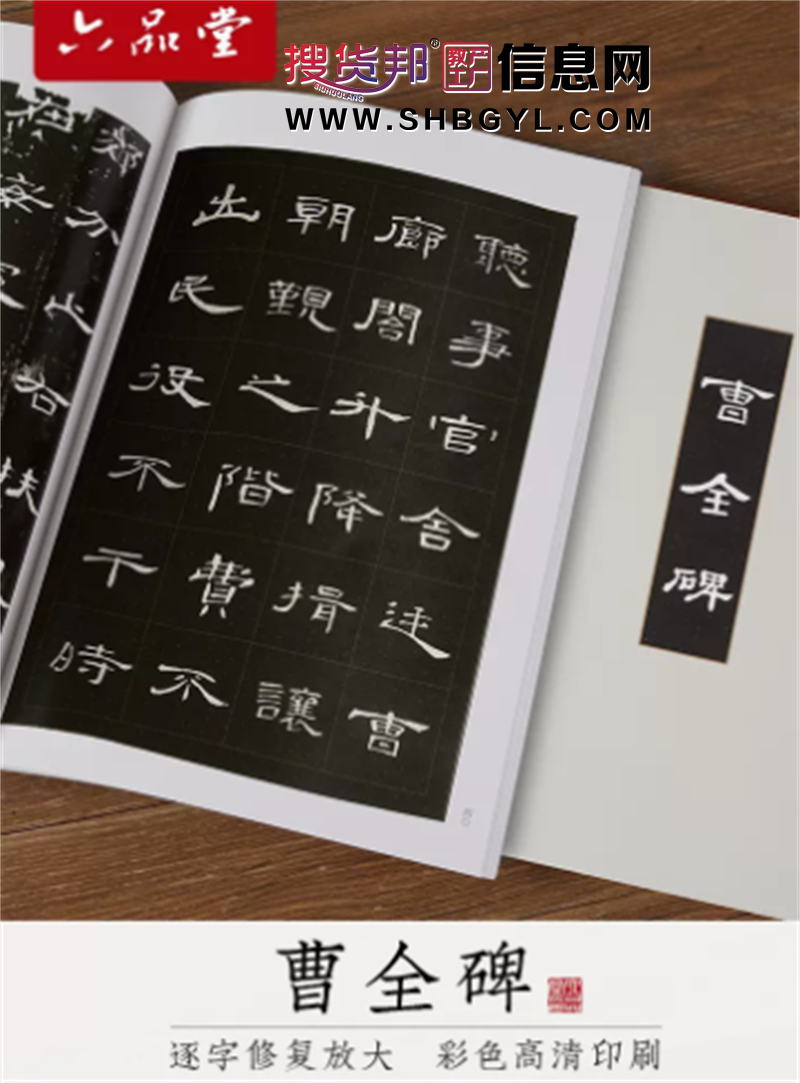 六品堂
搜货邦® 教产工厂 信息网
SOUHUOBANG
WWW.SHBGYL.COM
聽事官舍廷曹
廊閣升降揖讓
朝覲之階費不
出民役不干時
曹全碑
曹全碑
逐字修复放大 彩色高清印刷